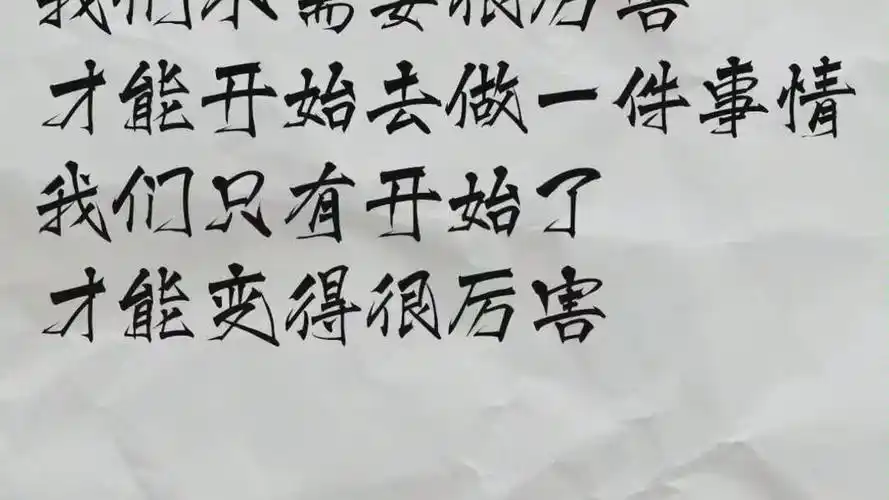 我们不需要很厉害
才能开始去做一件事情
我们只有开始了
才能变得很厉害